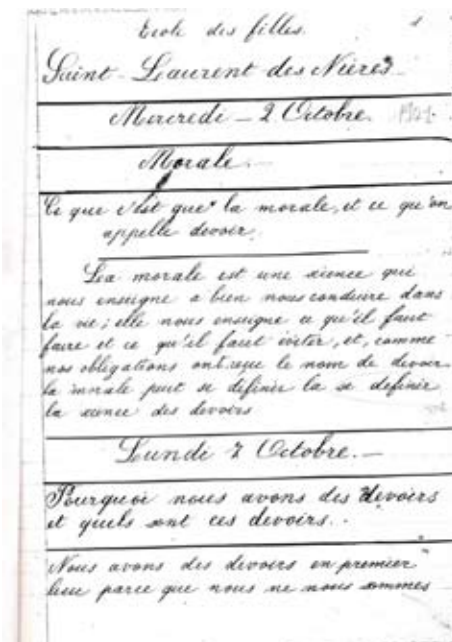 Ecole des filles. 1
Saint-Laurent des Nières
Mercredi - 2 Octobre.
Morale.-
Ce que c'est que la morale, et ce qu'on
appelle devoir.
La morale est une sience qui
nous enseigne a bien nous conduire dans
la vie; elle nous enseigne ce qu'il faut
faire et ce qu'il faut éviter, et, comme
nos obligations ont reçu le nom de devoir
la morale peut se définir la se définir
la sience des devoirs
Lundi 7 Octobre.-
Pourquoi nous avons des devoirs
et quels sont ces devoirs..
Nous avons des devoirs en premier
lieu parce que nous ne nous sommes